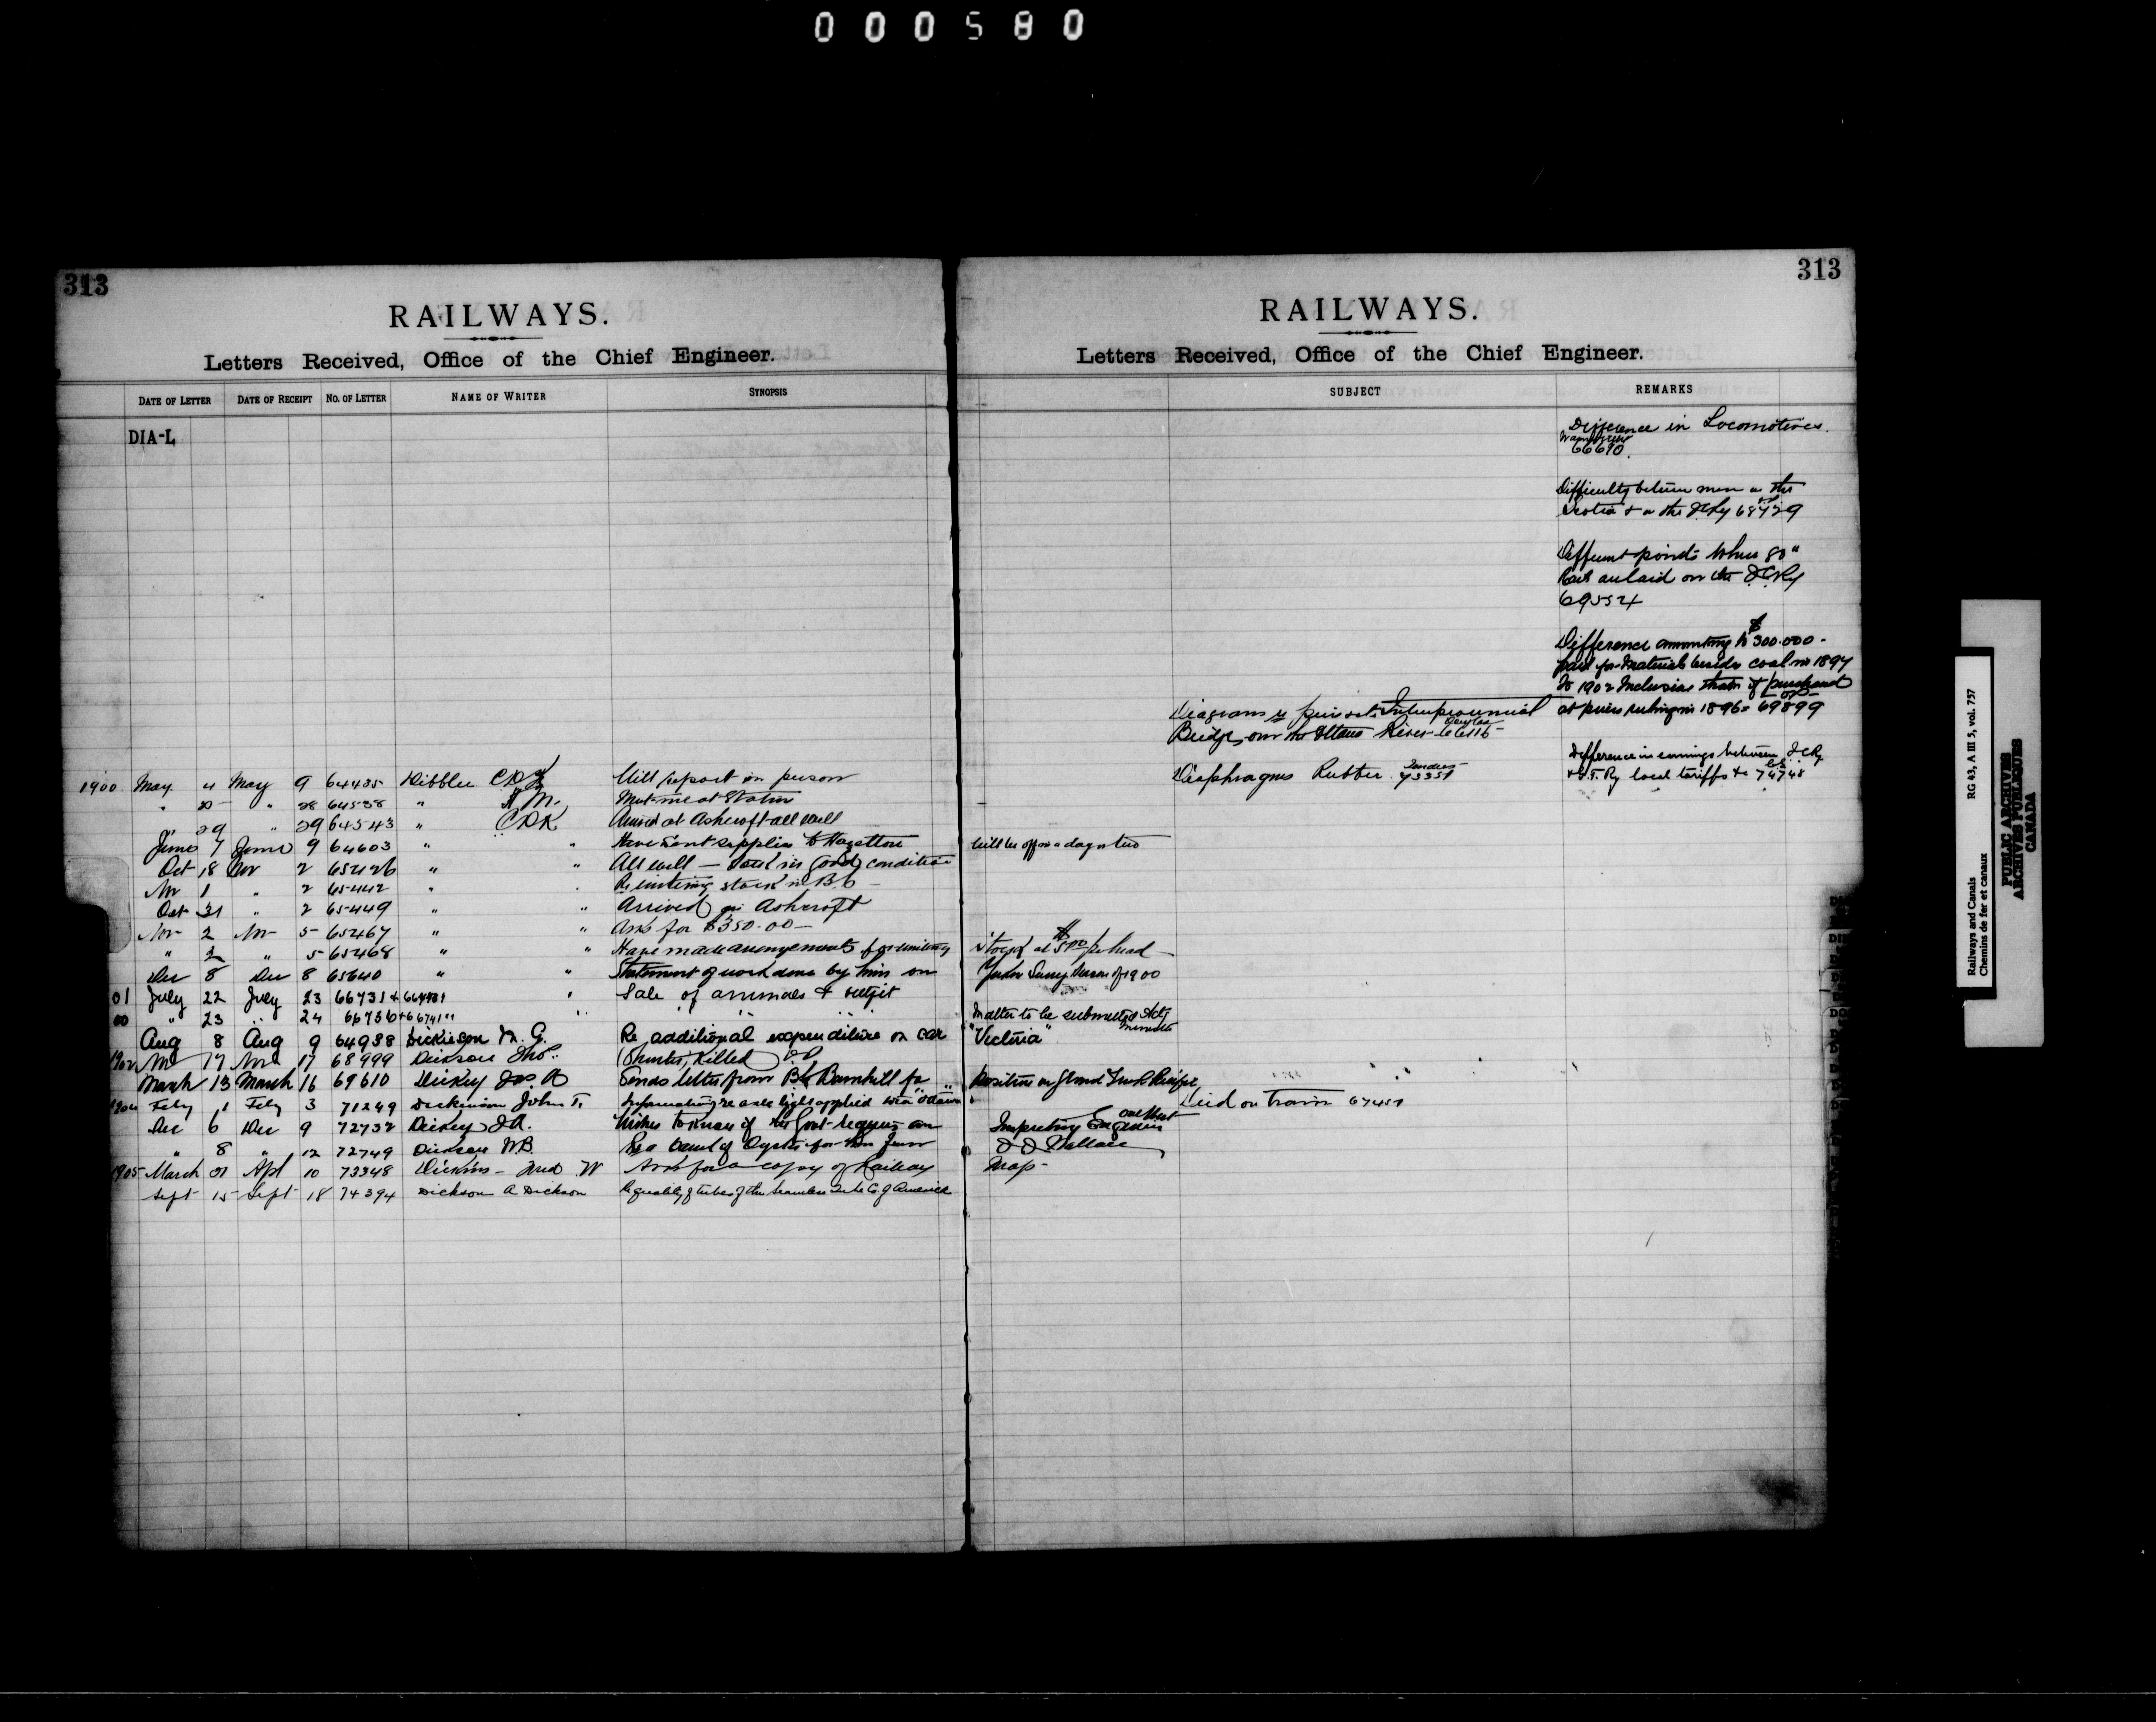 000580
313
RAILWAYS.
Letters Received, Office of the Chief Engineer.
DATE OF LETTER DATE OF RECEIPT NO. OF LETTER NAME OF WRITER SYNOPSIS
DIA-L
1900 May 4 May 9 64435 Dibblee C.D.K Will report in person
" 20 " 28 64538 " A M. Met me at Station
" 29 " 29 64543 " CDK Arrived at Ashcroft all well
June 7 June 9 64603 " " Have sent supplies to Hazelton will be off in a day or two
Oct 18 Nov 2 " " All well — stock in Good condition
Nov 1 " 2 65442 " " Re wintering stock in B.C
Oct 31 " 2 65449 " " Arrived Ashcroft
Nov 2 Nov 5 65467 " " Asks for $350.00—
" 2 " 5 65468 " " Have made arrangements for wintering stock at $5.00 per head
Dec 8 Dec 8 65640 " " Statement of work done by him on Yukon Survey Season of 1900
01 July 22 July 23 66731 + " Sale of animals & outfit
00 " 23 " 24 66736 + " " " Matter to be submitted Actg Minister
Aug 8 Aug 9 64988 Dickieson Re additional expenditure on car "Victoria"
1902 17 17 68999 Dickson Killed
March 13 March 16 69610 Dickey Jas A Sends letter from Barnhill for position on Grand Trunk Pacific
1904 Feby 1 Feby 3 71249 Dickinson John T. Information re axle light applied to car "Ottawa"
Dec 6 Dec 9 72732 Dickey J.A. Wishes to know if the Govt requires an Inspecting Engineer
" 8 " 12 72749 Dickson W.B. Re a barrel of Oysters for D D Wallace
1905 March 31 Apl 10 73348 Dickins W Asks for a copy of Railway Map-
Sept 15 Sept 18 74394 Dickson A Dickson Re quality of tubes of the Seamless Tube Co. of America
313
RAILWAYS.
Letters Received, Office of the Chief Engineer.
SUBJECT REMARKS
Difference in Locomotives.
66690.
Difficulty between men on the
Scotia & on the
Different points where 80"
Rails are laid on the I.C.Ry
69554
Difference amounting to $300.000-
paid for materials besides coal in 1897
to 1902 inclusive than if purchased
at prices ruling in 1896= 69899
Diagrams Interprovincial
Bridge, over the Ottawa River
Difference in earnings between I C Ry
& G.T. Ry local tariffs &c 74748
Diaphragms Rubber 73351
Died on train 67451
Railways and Canals RG 43, A III 5, vol. 757
Chemins de fer et canaux
PUBLIC ARCHIVES
ARCHIVES PUBLIQUES
CANADA